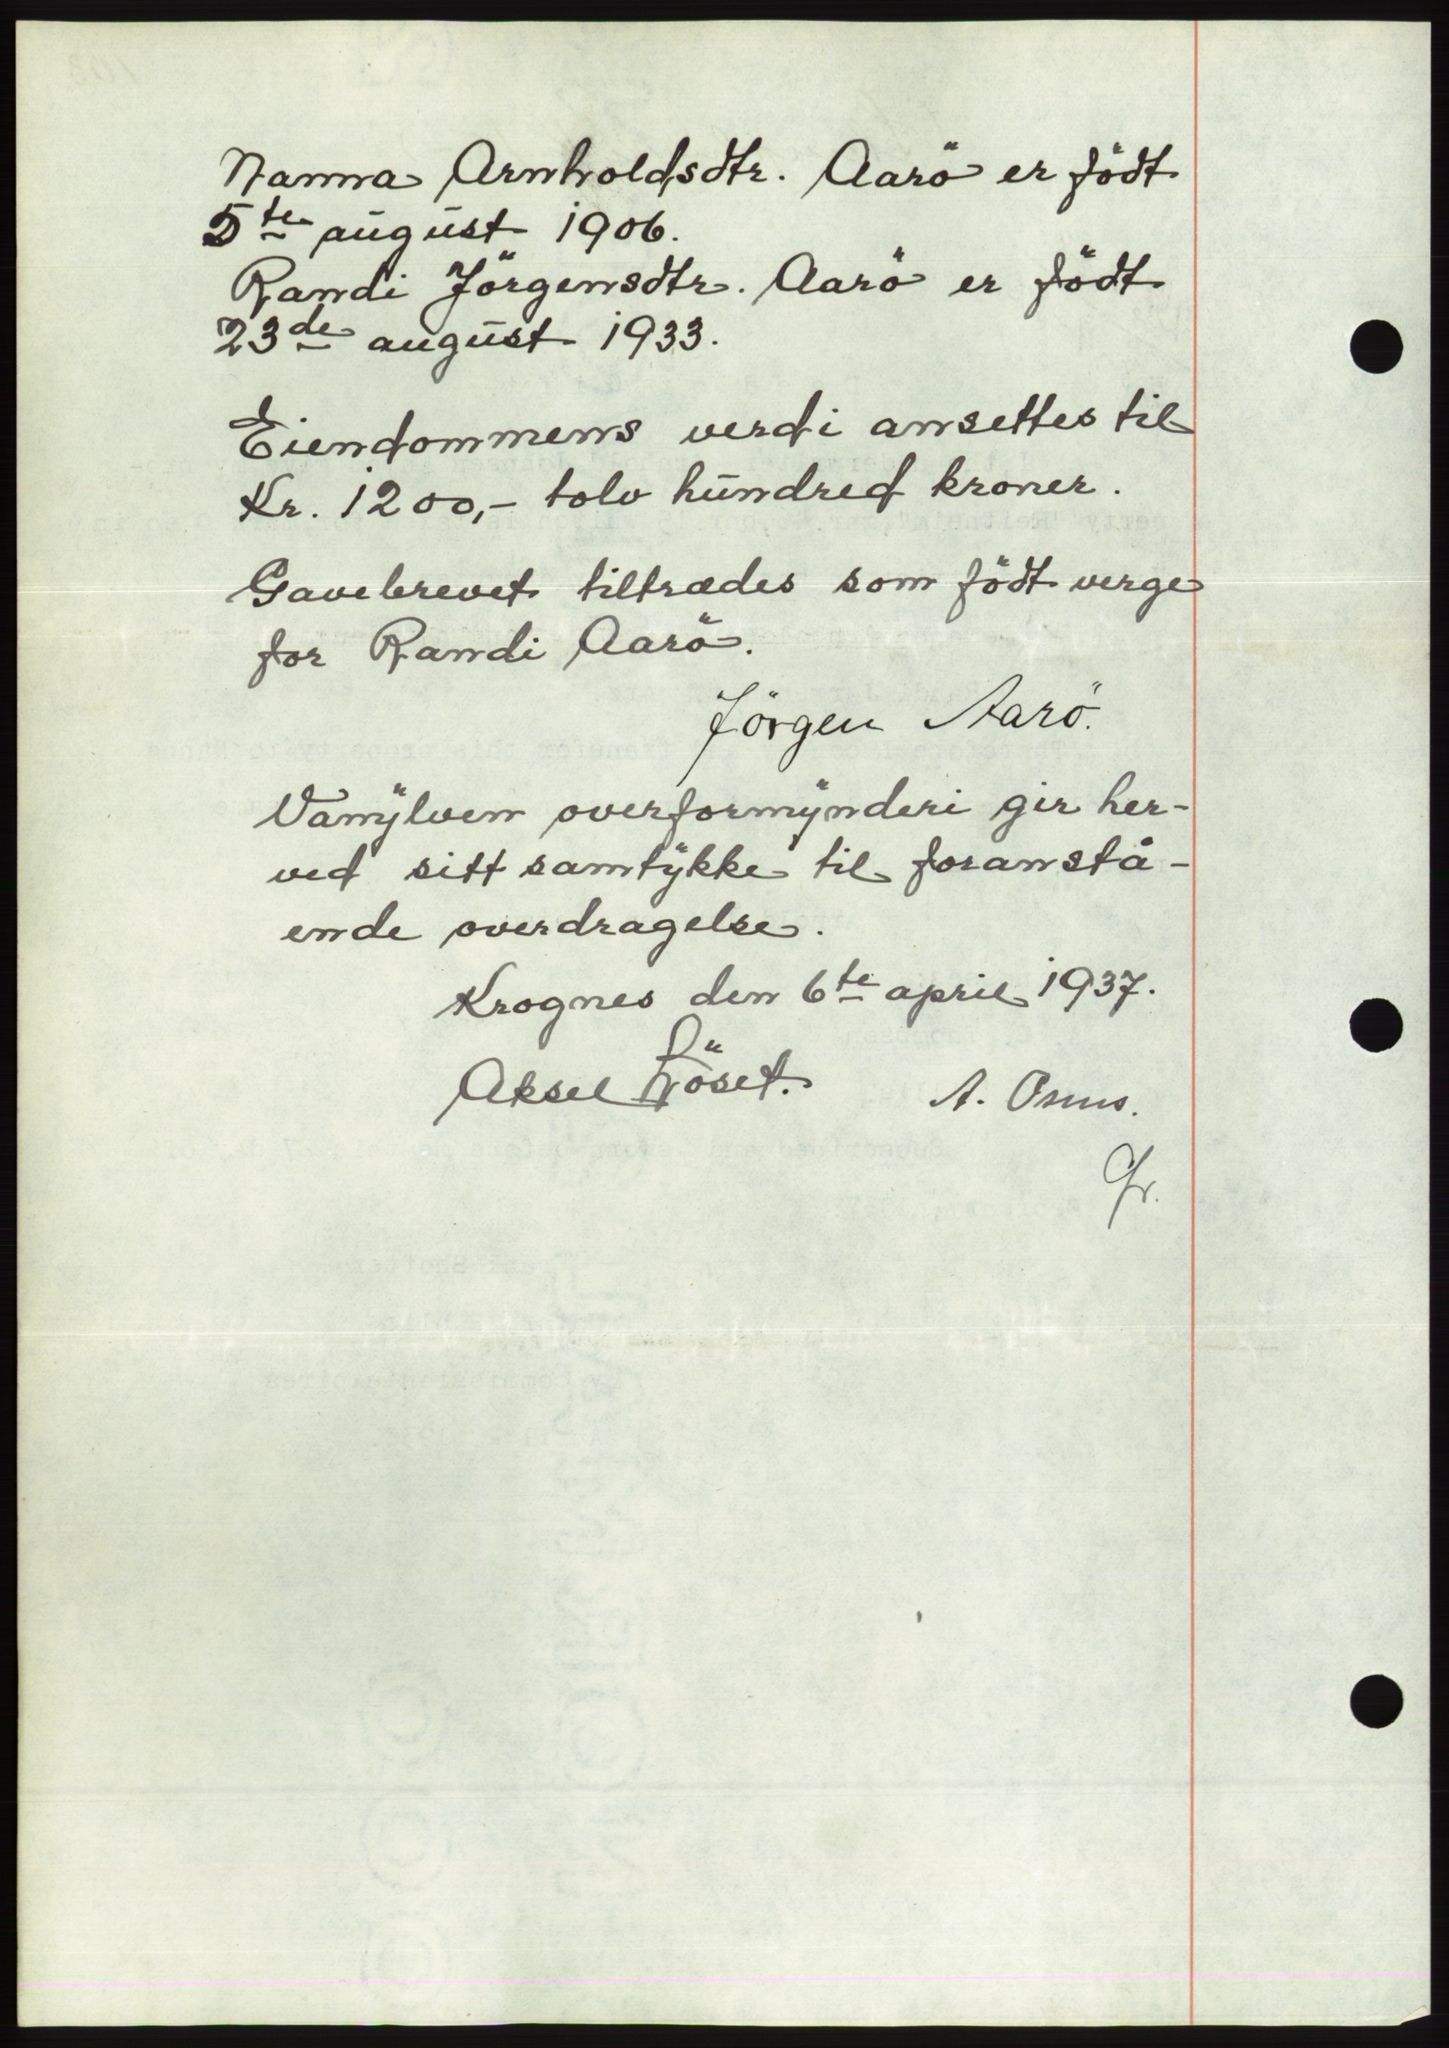 Nanna Arnholdsdtr. Aarö er födt
5te august 1906.
Randi Jörgensdtr. Aarö er födt
23de august 1933.
Eiendommens verdi ansettes til
Kr. 1200,- tolv hundred kroner.
Gavebrevet tiltrædes som födt verge
for Randi Aarö.
Jörgen Aarö.
Vanylven overformynderi gir her-
ved sitt samtykke til foranstå-
ende overdragelse.
Krognes den 6te april 1937.
Aksel Löset. A.